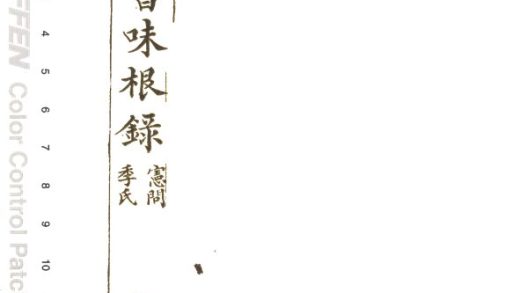 味根錄
憲問
季氏
4
5
6
7
8
9
10
FFEN Color Control Patc